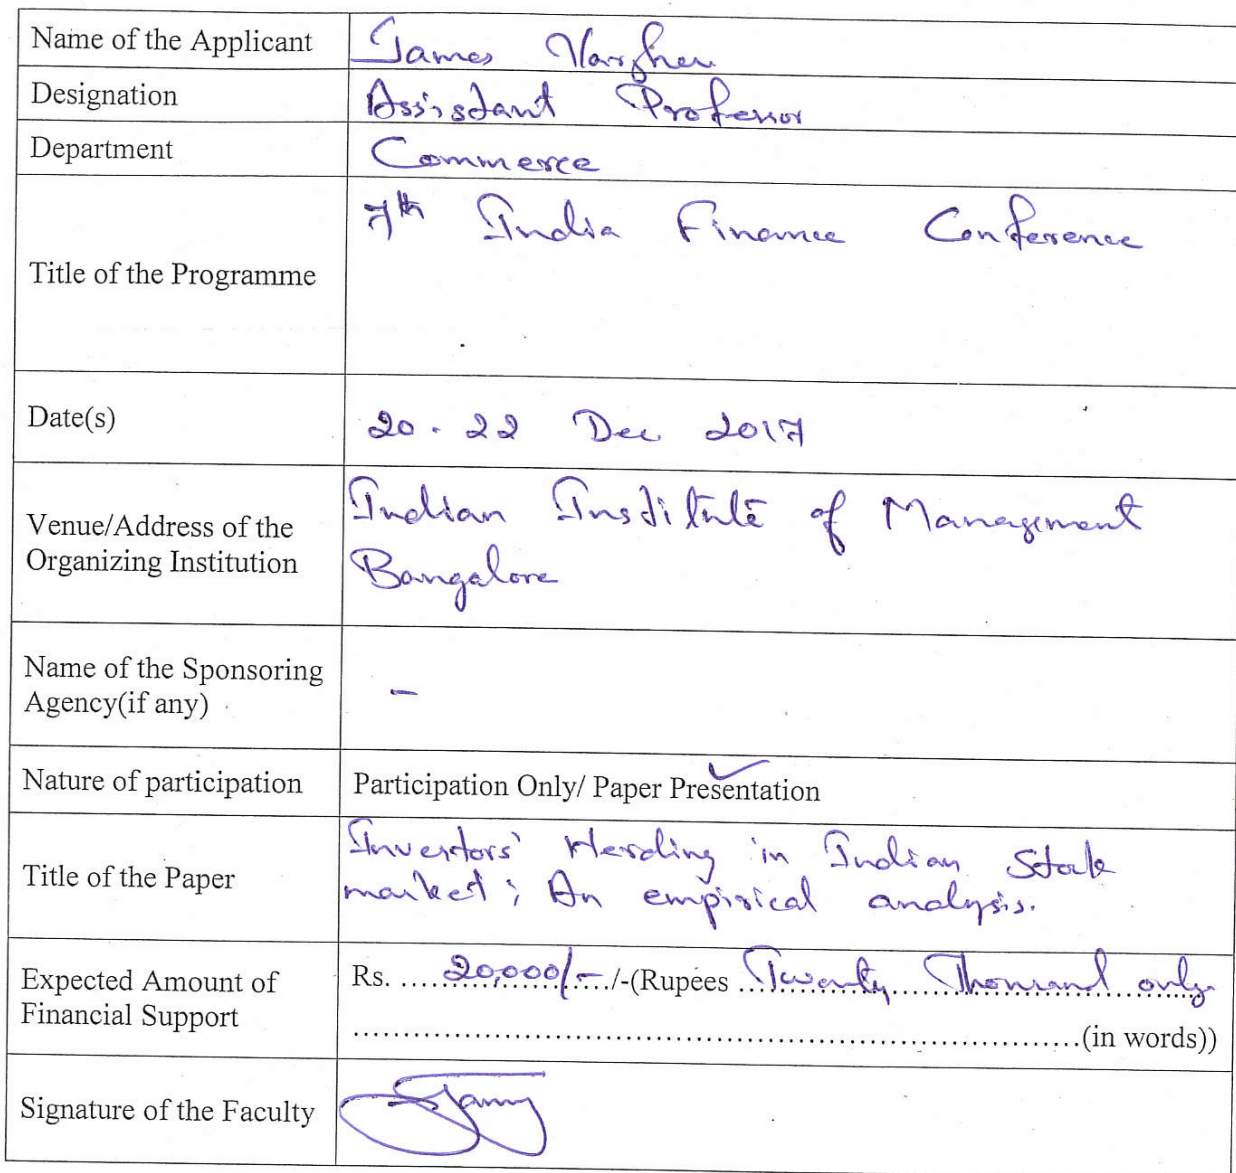 Name of the Applicant James Varghese
Designation Assistant Professor
Department Commerce
Title of the Programme 7th India Finance Conference
Date(s) 20 - 22 Dec 2017
Venue/Address of the Indian Institute of Management
Organizing Institution Bangalore
Name of the Sponsoring
Agency(if any) -
Nature of participation Participation Only/ Paper Presentation ✓
Title of the Paper Investors' Herding in Indian Stock
market; An empirical analysis.
Expected Amount of Rs. ....20,000/-..../-(Rupees ..Twenty Thousand only.
Financial Support ........................................................................(in words))
Signature of the Faculty